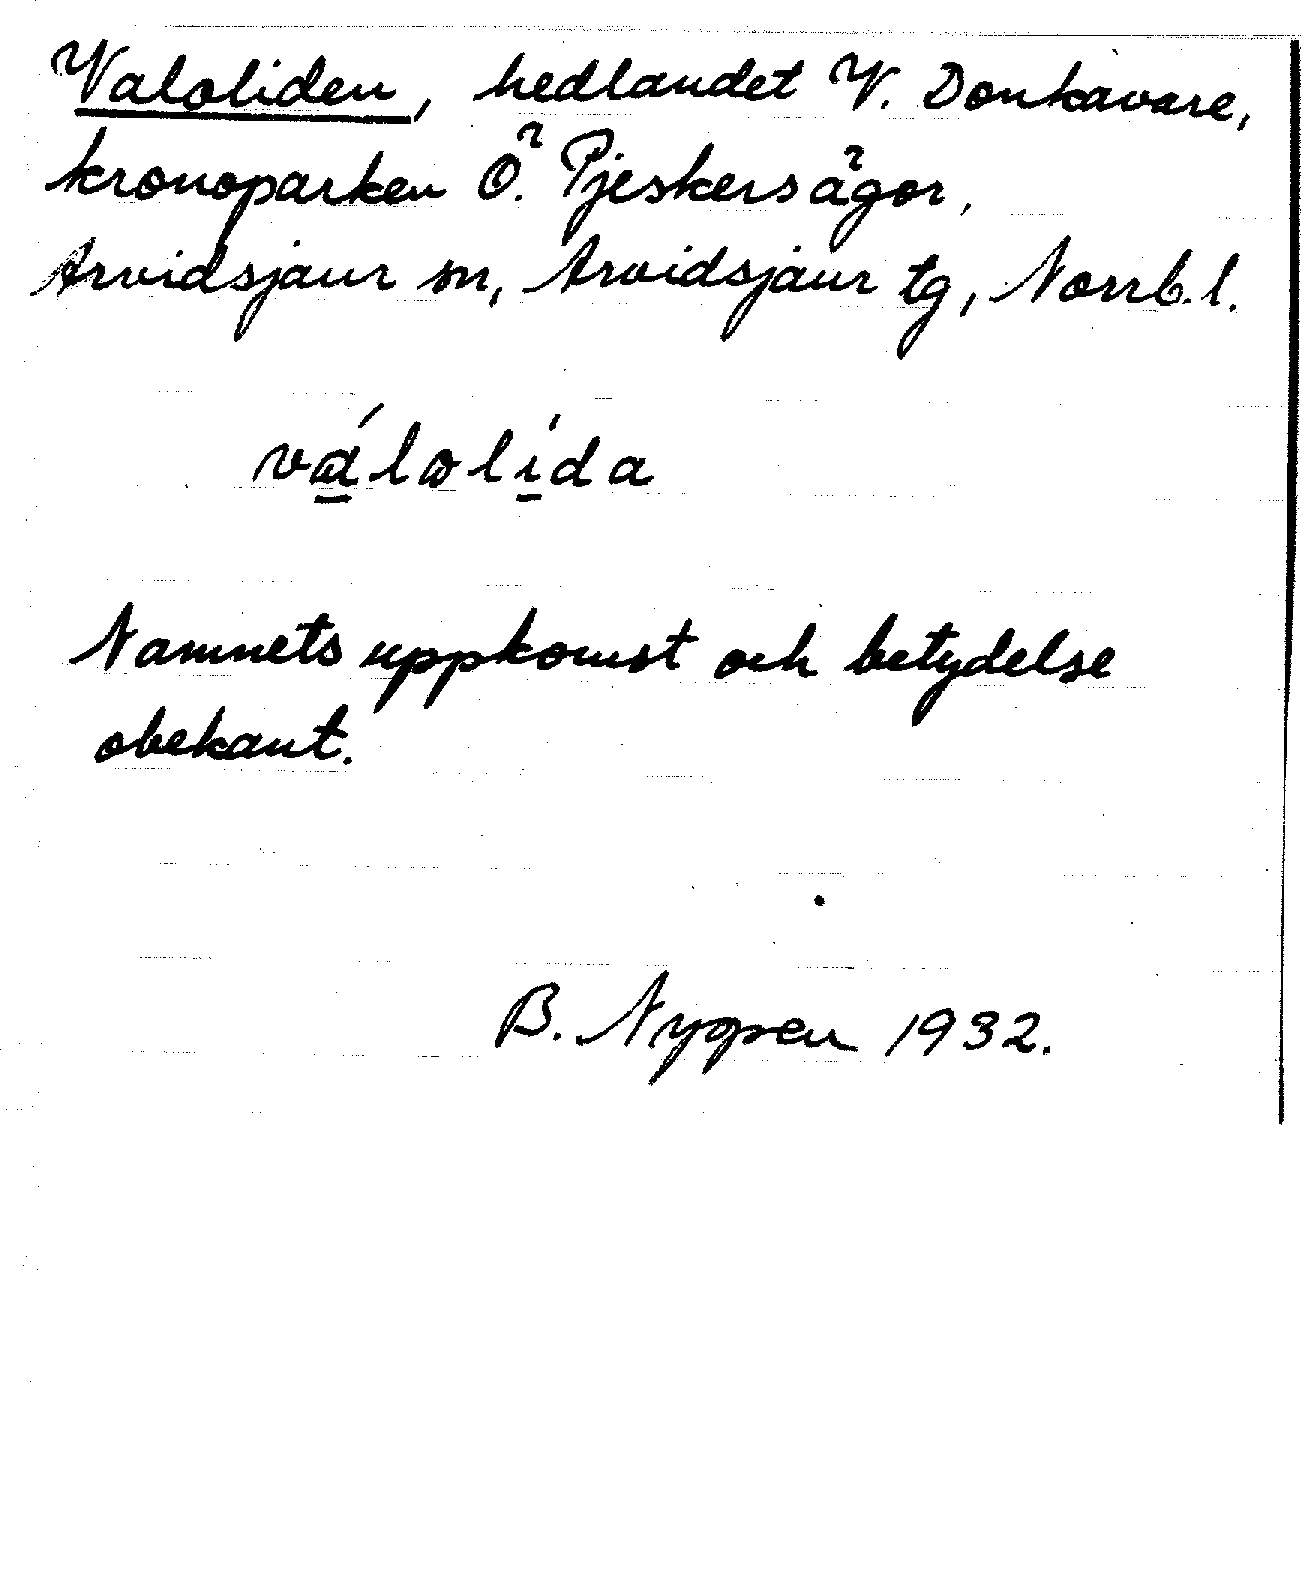 Valoliden, hedlandet V. Donkavare,
kronoparken Ö. Pjeskersägor,
Arvidsjaur sn, Arvidsjaur tg, Norrb.l.
válolída
Namnets uppkomst och betydelse
obekant.
B. Nygren 1932.